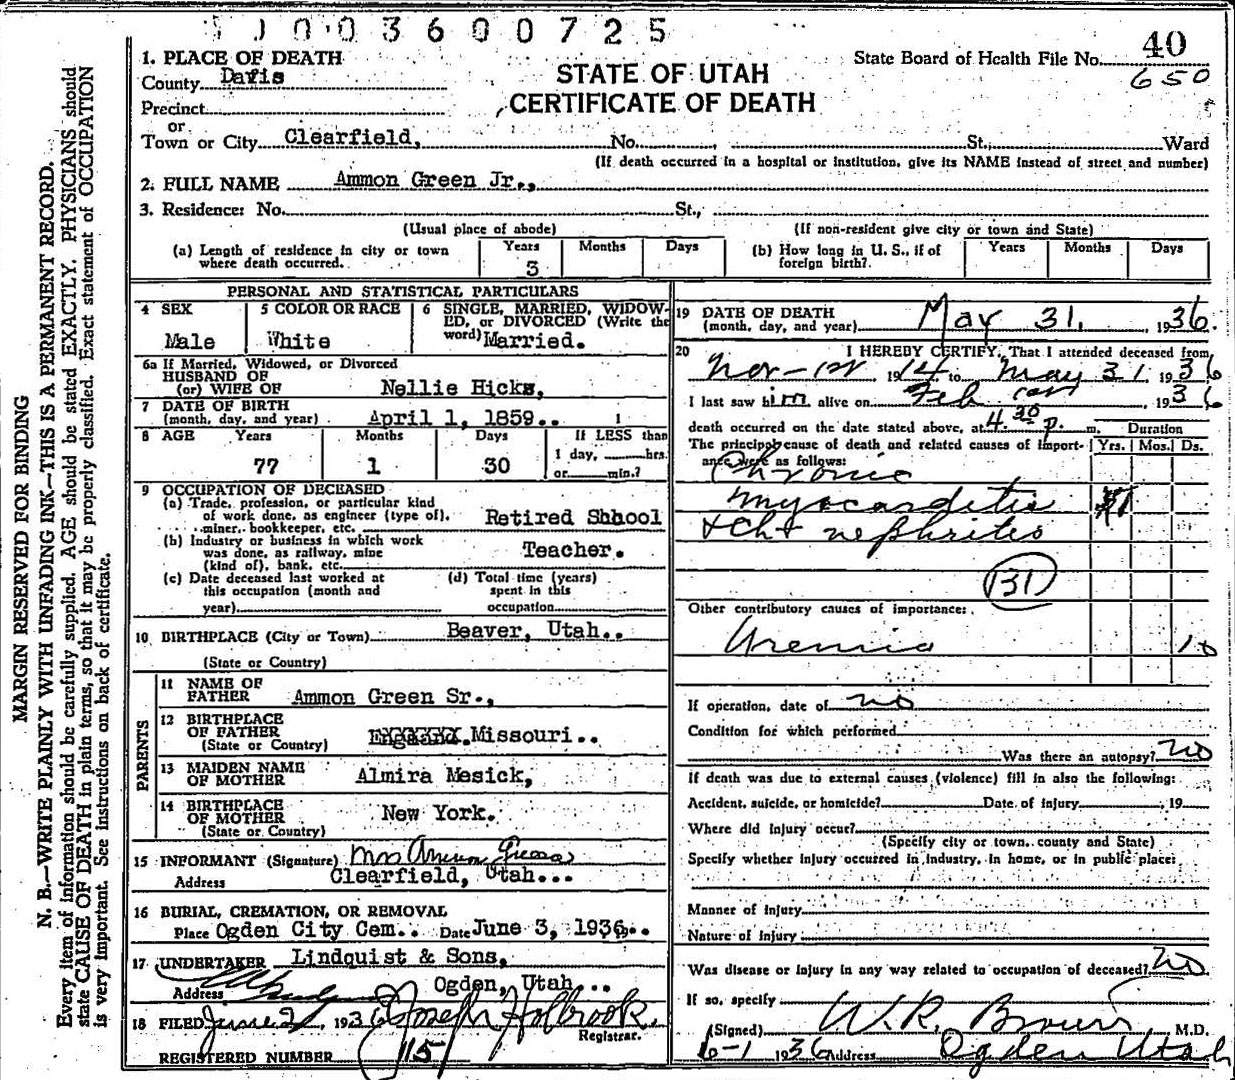 0 0 3 6 0 0 7 2 5
MARGIN RESERVED FOR BINDING
N. B.—WRITE PLAINLY WITH UNFADING INK—THIS IS A PERMANENT RECORD.
Every item of information should be carefully supplied. AGE should be stated EXACTLY. PHYSICIANS should
state CAUSE OF DEATH in plain terms, so that it may be properly classified. Exact statement of OCCUPATION
is very important. See instructions on back of certificate.
1. PLACE OF DEATH
County Davis
Precinct
or
Town or City Clearfield, No. St. Ward
STATE OF UTAH
CERTIFICATE OF DEATH
State Board of Health File No. 40
650
(If death occurred in a hospital or institution, give its NAME instead of street and number)
2. FULL NAME Ammon Green Jr.,
3. Residence: No. St.,
(Usual place of abode) (If non-resident give city or town and State)
(a) Length of residence in city or town where death occurred. Years 3 Months Days
(b) How long in U. S., if of foreign birth? Years Months Days
PERSONAL AND STATISTICAL PARTICULARS
4 SEX Male
5 COLOR OR RACE White
6 SINGLE, MARRIED, WIDOWED, or DIVORCED (Write the word) Married.
6a If Married, Widowed, or Divorced
HUSBAND OF
(or) WIFE OF Nellie Hicks,
7 DATE OF BIRTH
(month, day, and year) April 1, 1859..
8 AGE Years 77 Months 1 Days 30 If LESS than 1 day, hrs. or min.?
9 OCCUPATION OF DECEASED
(a) Trade, profession, or particular kind
of work done, as engineer (type of),
miner, bookkeeper, etc. Retired School
(b) Industry or business in which work
was done, as railway, mine
(kind of), bank, etc. Teacher.
(c) Date deceased last worked at
this occupation (month and
year)
(d) Total time (years)
spent in this
occupation
10 BIRTHPLACE (City or Town) Beaver, Utah..
(State or Country)
PARENTS
11 NAME OF
FATHER Ammon Green Sr.,
12 BIRTHPLACE
OF FATHER
(State or Country) Missouri..
13 MAIDEN NAME
OF MOTHER Almira Mesick,
14 BIRTHPLACE
OF MOTHER
(State or Country) New York.
15 INFORMANT (Signature) Mrs Ammon Green
Address Clearfield, Utah...
16 BURIAL, CREMATION, OR REMOVAL
Place Ogden City Cem.. Date June 3, 1936..
17 UNDERTAKER Lindquist & Sons,
Address Ogden, Utah ..
18 FILED June 2, 1936 Joseph Holbrook.
Registrar.
REGISTERED NUMBER 115
19 DATE OF DEATH
(month, day, and year) May 31, 1936.
20 I HEREBY CERTIFY, That I attended deceased from
1914 to May 31 1936
I last saw him alive on Feb 1936
death occurred on the date stated above, at 4 30 p. m. Duration
The principal cause of death and related causes of importance were as follows: Yrs. Mos. Ds.
Chronic
myocarditis
& Ch nephritis
131
Other contributory causes of importance:
Uremia 10
If operation, date of no
Condition for which performed
Was there an autopsy? No
If death was due to external causes (violence) fill in also the following:
Accident, suicide, or homicide? Date of injury , 19
Where did injury occur?
(Specify city or town, county and State)
Specify whether injury occurred in industry, in home, or in public place:
Manner of injury
Nature of injury
Was disease or injury in any way related to occupation of deceased? No
If so, specify
(Signed) W. R. Brown M.D.
6-1 1936 Address Ogden Utah